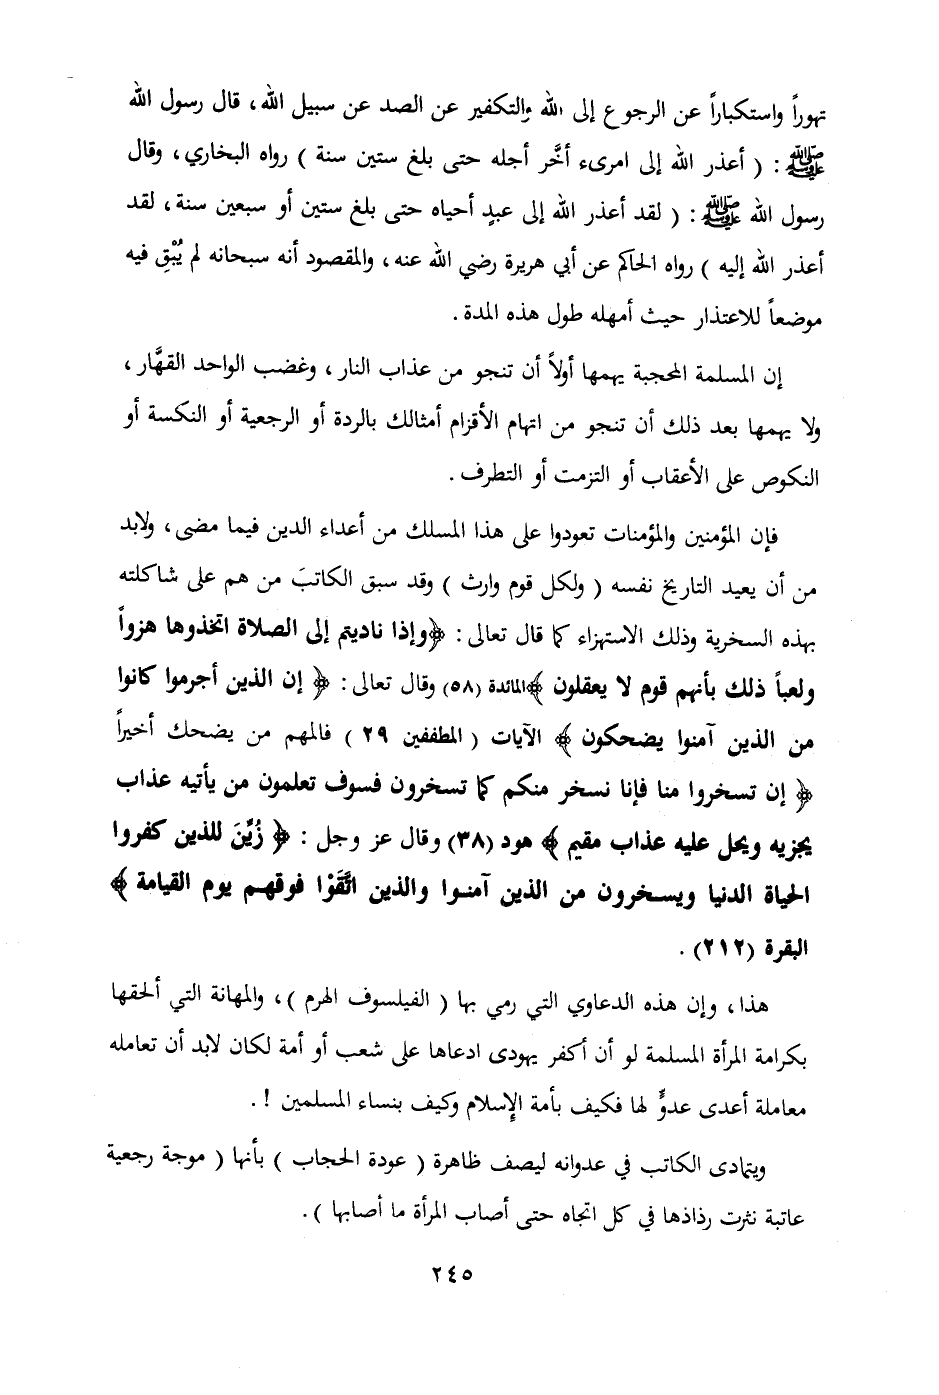 تهوراً واستكباراً عن الرجوع إلى الله والتكفير عن الصد عن سبيل الله، قال رسول الله
ﷺ : ( أعذر الله إلى امرىء أخَّر أجله حتى بلغ ستين سنة ) رواه البخاري، وقال
رسول الله ﷺ : ( لقد أعذر الله إلى عبدٍ أحياه حتى بلغ ستين أو سبعين سنة، لقد
أعذر الله إليه ) رواه الحاكم عن أبي هريرة رضي الله عنه، والمقصود أنه سبحانه لم يُبْقِ فيه
موضعاً للاعتذار حيث أمهله طول هذه المدة .
إن المسلمة المحجبة يهمها أولاً أن تنجو من عذاب النار، وغضب الواحد القهَّار،
ولا يهمها بعد ذلك أن تنجو من اتهام الأقزام أمثالك بالردة أو الرجعية أو النكسة أو
النكوص على الأعقاب أو التزمت أو التطرف .
فإن المؤمنين والمؤمنات تعودوا على هذا المسلك من أعداء الدين فيما مضى، ولابد
من أن يعيد التاريخ نفسه ( ولكل قوم وارث ) وقد سبق الكاتبَ من هم على شاكلته
بهذه السخرية وذلك الاستهزاء كما قال تعالى : ﴿وإذا ناديتم إلى الصلاة اتخذوها هزواً
ولعباً ذلك بأنهم قوم لا يعقلون ﴾المائدة (٥٨) وقال تعالى : ﴿ إن الذين أجرموا كانوا
من الذين آمنوا يضحكون ﴾ الآيات ( المطففين ٢٩ ) فالمهم من يضحك أخيراً
﴿ إن تسخروا منا فإنا نسخر منكم كما تسخرون فسوف تعلمون من يأتيه عذاب
يجزيه ويحل عليه عذاب مقيم ﴾ هود (٣٨) وقال عز وجل : ﴿ زُيِّنَ للذين كفروا
الحياة الدنيا ويسخرون من الذين آمنوا والذين اتَّقَوْا فوقهم يوم القيامة ﴾
البقرة (٢١٢) .
هذا، وإن هذه الدعاوي التي رمي بها ( الفيلسوف الهرم )، والمهانة التي ألحقها
بكرامة المرأة المسلمة لو أن أكفر يهودى ادعاها على شعب أو أمة لكان لابد أن تعامله
معاملة أعدى عدوٍّ لها فكيف بأمة الإسلام وكيف بنساء المسلمين ! .
ويتمادى الكاتب في عدوانه ليصف ظاهرة ( عودة الحجاب ) بأنها ( موجة رجعية
عاتبة نثرت رذاذها في كل اتجاه حتى أصاب المرأة ما أصابها ) .
٢٤٥